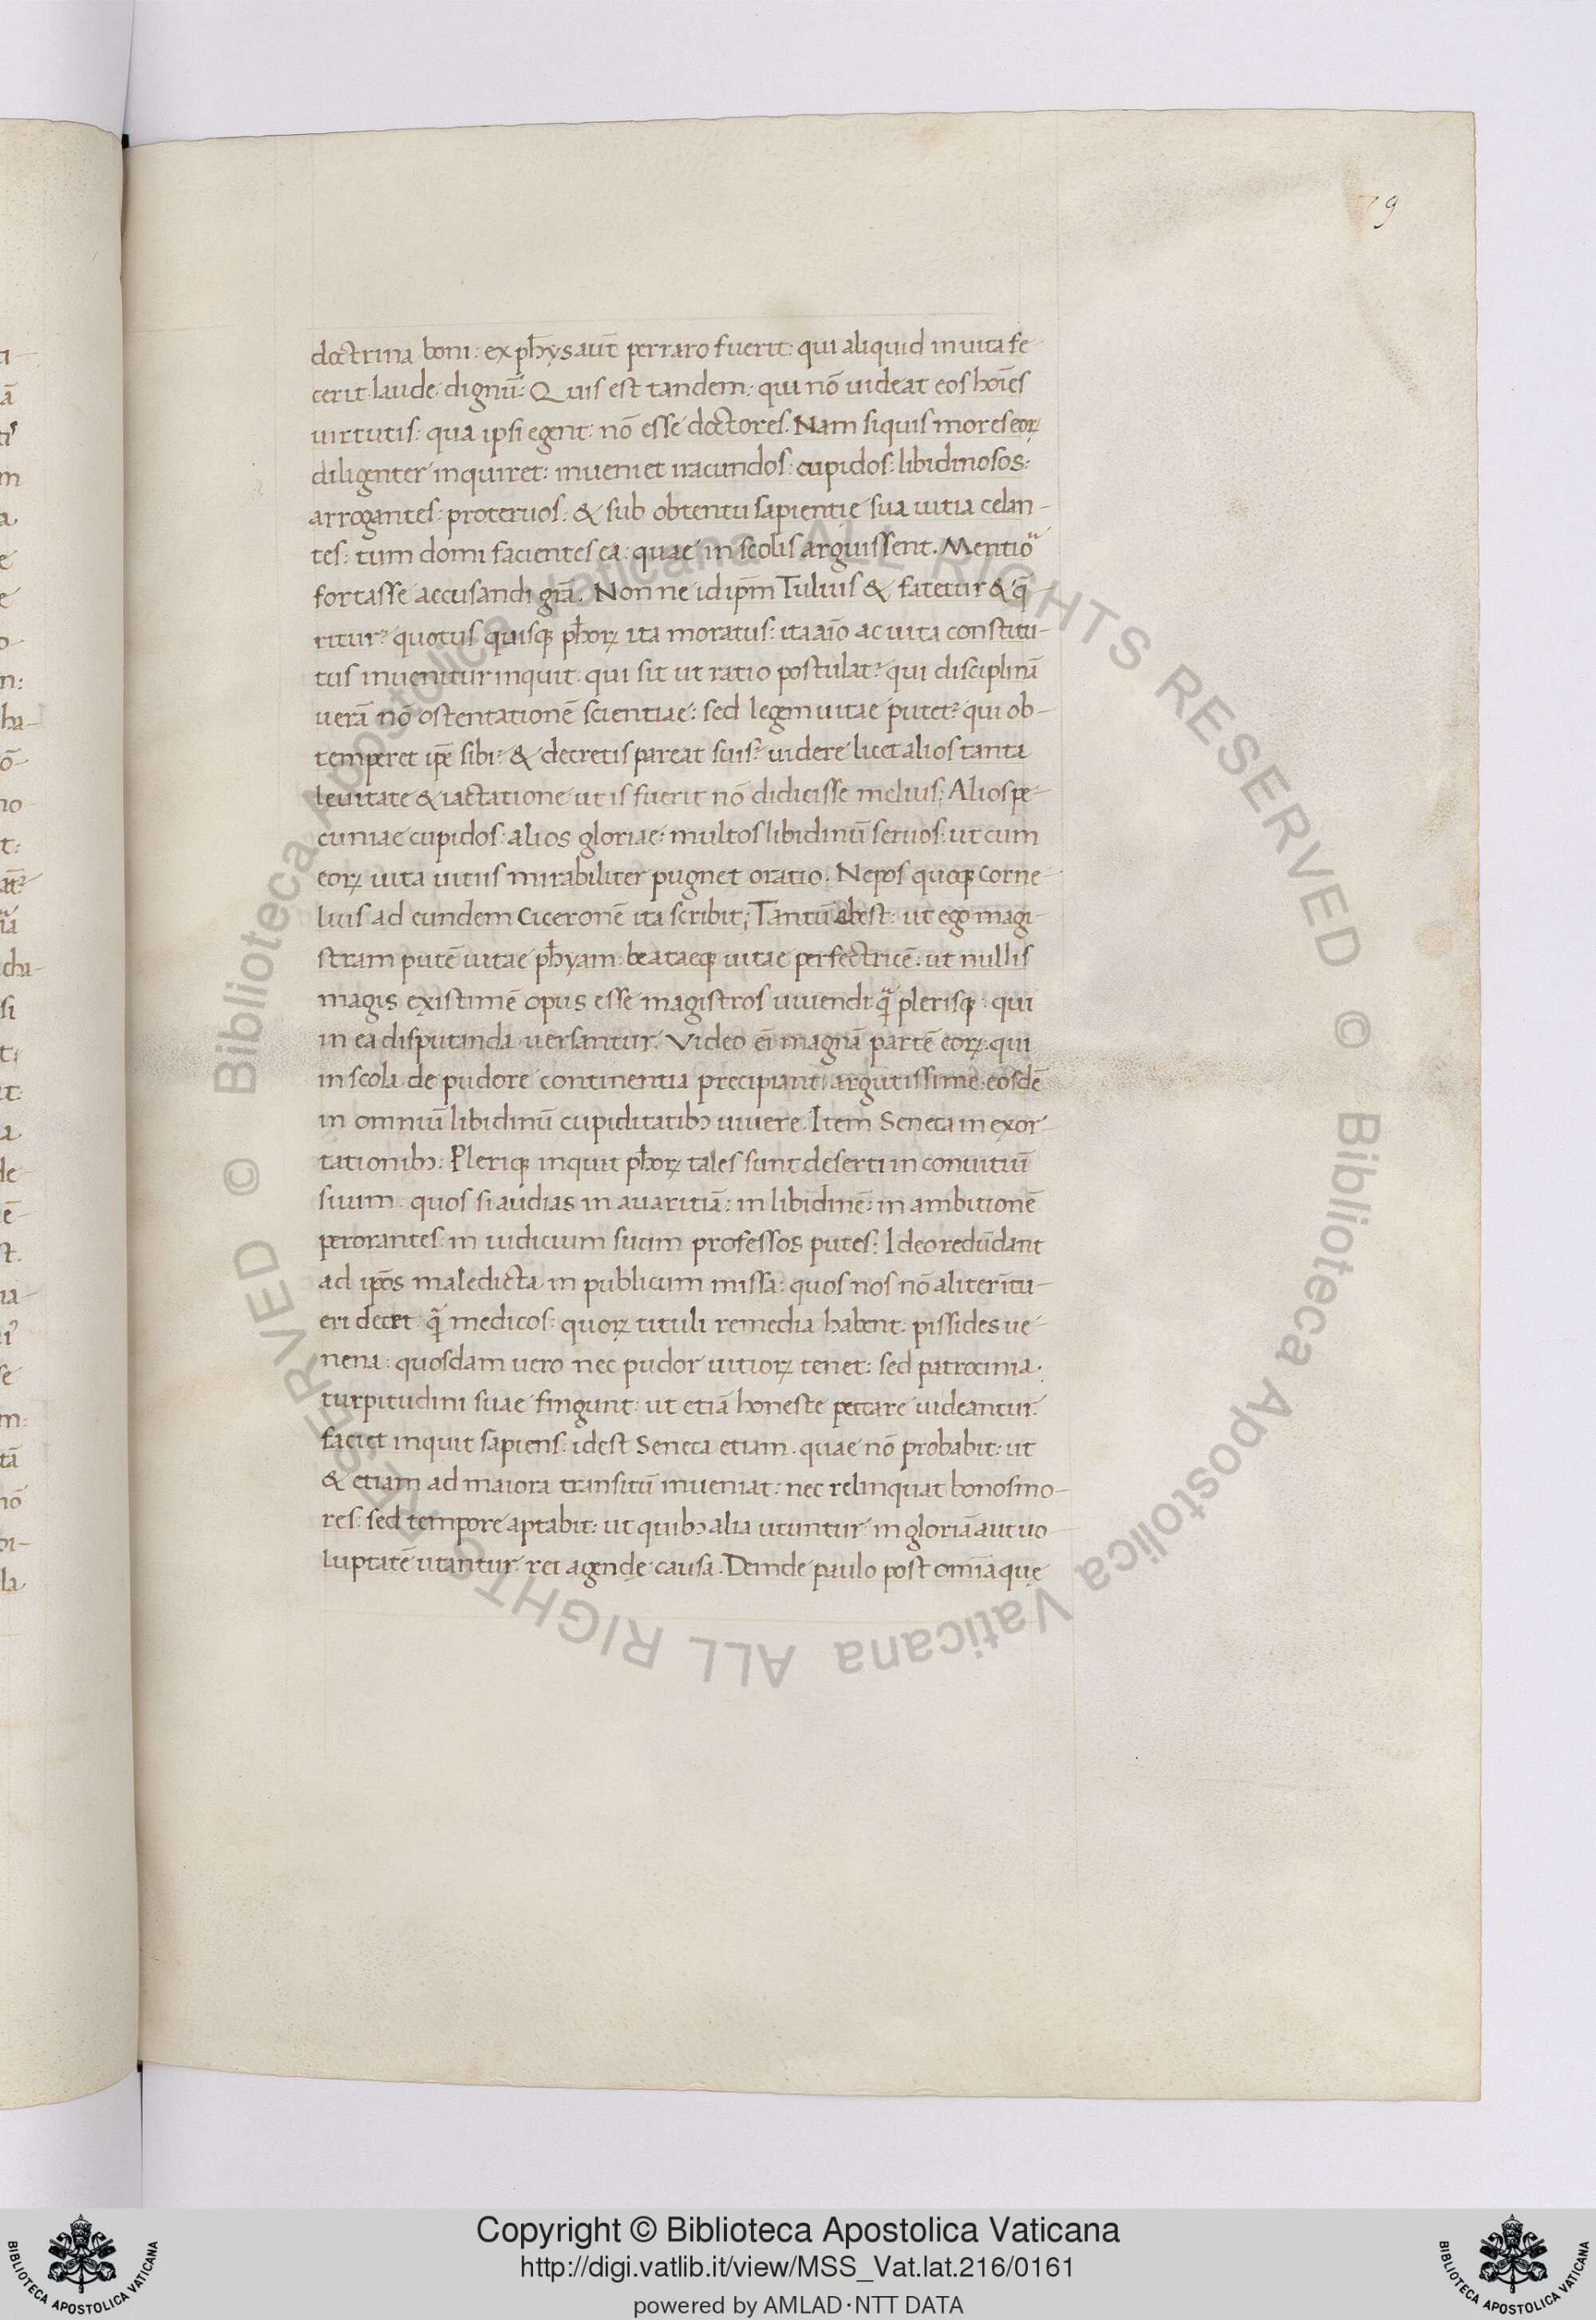 79
doctrina boni: ex ph̄ys aut̄ perraro fuerit: qui aliquid in uita fe-
cerit laude dignū: Quis est tandem: qui nō uideat eos hoīes
uirtutis: qua ipsi egent: nō esse doctores. Nam siquis mores eoꝝ
diligenter inquiret: inueniet iracundos: cupidos: libidinosos:
arrogantes: proteruos: & sub obtentu sapientię sua uitia celan-
tes: tum domi facientes ea: quae in scolis arguissent. Mentior
fortasse accusandi grā. Non ne id ipm̄ Tulius & fatetur & q̄-
ritur? quotus quisqꝫ ph̄oꝝ ita moratus: ita aīo ac uita constitu-
tus inuenitur inquit: qui sit ut ratio postulat? qui disciplinā
uerā nō ostentationē scientiae: sed legem uitae putet? qui ob-
temperet ip̄e sibi? & decretis pareat suis? uidere licet alios tanta
leuitate & iactatione ut is fuerit nō didicisse melius; Alios pe-
cuniae cupidos: alios gloriae: multos libidinū seruos: ut cum
eoꝝ uita uitiis mirabiliter pugnet oratio. Nepos quoqꝫ Corne-
lius ad eundem Ciceronē ita scribit; Tantū abest: ut ego magi-
stram putē uitae ph̄yam: beataeqꝫ uitae perfectricē: ut nullis
magis existimē opus esse magistros uiuendi: q̄ plerisqꝫ: qui
in ea disputanda uersantur. Video ei̅ magnā partē eoꝝ: qui
in scola de pudore continentia precipiant argutissime: eosdē
in omniū libidinū cupiditatibꝫ uiuere. Item Seneca in exor-
tationibꝫ: Pleriqꝫ inquit ph̄oꝝ tales sunt deserti in conuitiū
suum: quos si audias in auaritiā: in libidinē: in ambitionē
perorantes: in iudicium suum professos putes: Ideo redūdant
ad ip̄os maledicta in publicum missa: quos nos nō aliter ītu-
eri decet: q̄ medicos: quoꝝ tituli remedia habent: pissides ue-
nena: quosdam uero nec pudor uitioꝝ tenet: sed patrocinia
turpitudini suae fingunt: ut etiā honeste peccare uideantur.
faciet inquit sapiens: idest Seneca etiam quae nō probabit: ut
& etiam ad maiora transitū inueniat: nec relinquat bonos mo-
res: sed tempore aptabit: ut quibꝫ alia utuntur in gloriā aut uo-
luptatē utantur rei agendę causa. Deinde paulo post omīa quę
© Biblioteca Apostolica Vaticana ALL RIGHTS RESERVED © Biblioteca Apostolica Vaticana ALL RIGHTS RESERVED
Copyright © Biblioteca Apostolica Vaticana
http://digi.vatlib.it/view/MSS_Vat.lat.216/0161
powered by AMLAD·NTT DATA
BIBLIOTECA APOSTOLICA VATICANA
BIBLIOTECA APOSTOLICA VATICANA